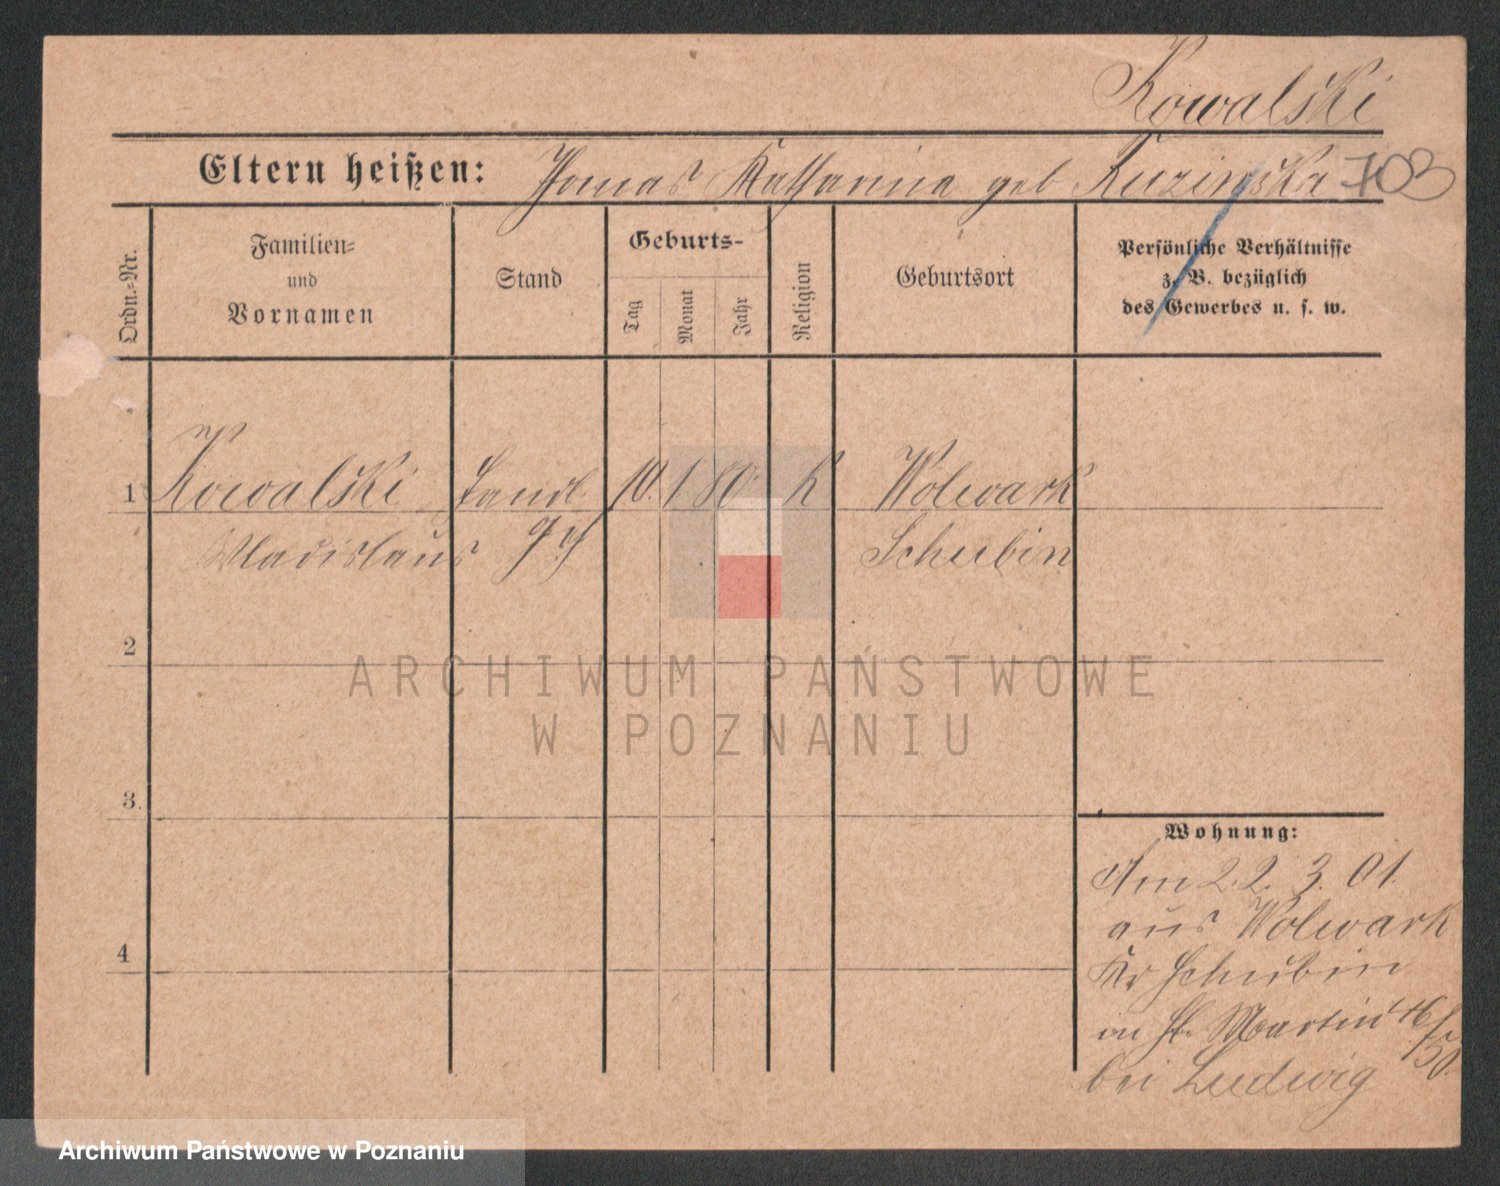 Kowalski
Eltern heißen: Thomas Katharina geb Kuzinska 703
Ordn.-Nr.
Familien-
und
Vornamen
Stand
Geburts-
Tag
Monat
Jahr
Religion
Geburtsort
Persönliche Verhältnisse
z. B. bezüglich
des Gewerbes u. s. w.
1 Kowalski Handl. 10. 1. 80. K Wolwark
Wladislaus Schubin
2
3.
4
Wohnung:
Am 22. 3. 01.
aus Wolwark
Kr Schubin
in St. Martin 46/50.
bei Ludwig
ARCHIWUM PAŃSTWOWE
W POZNANIU
Archiwum Państwowe w Poznaniu